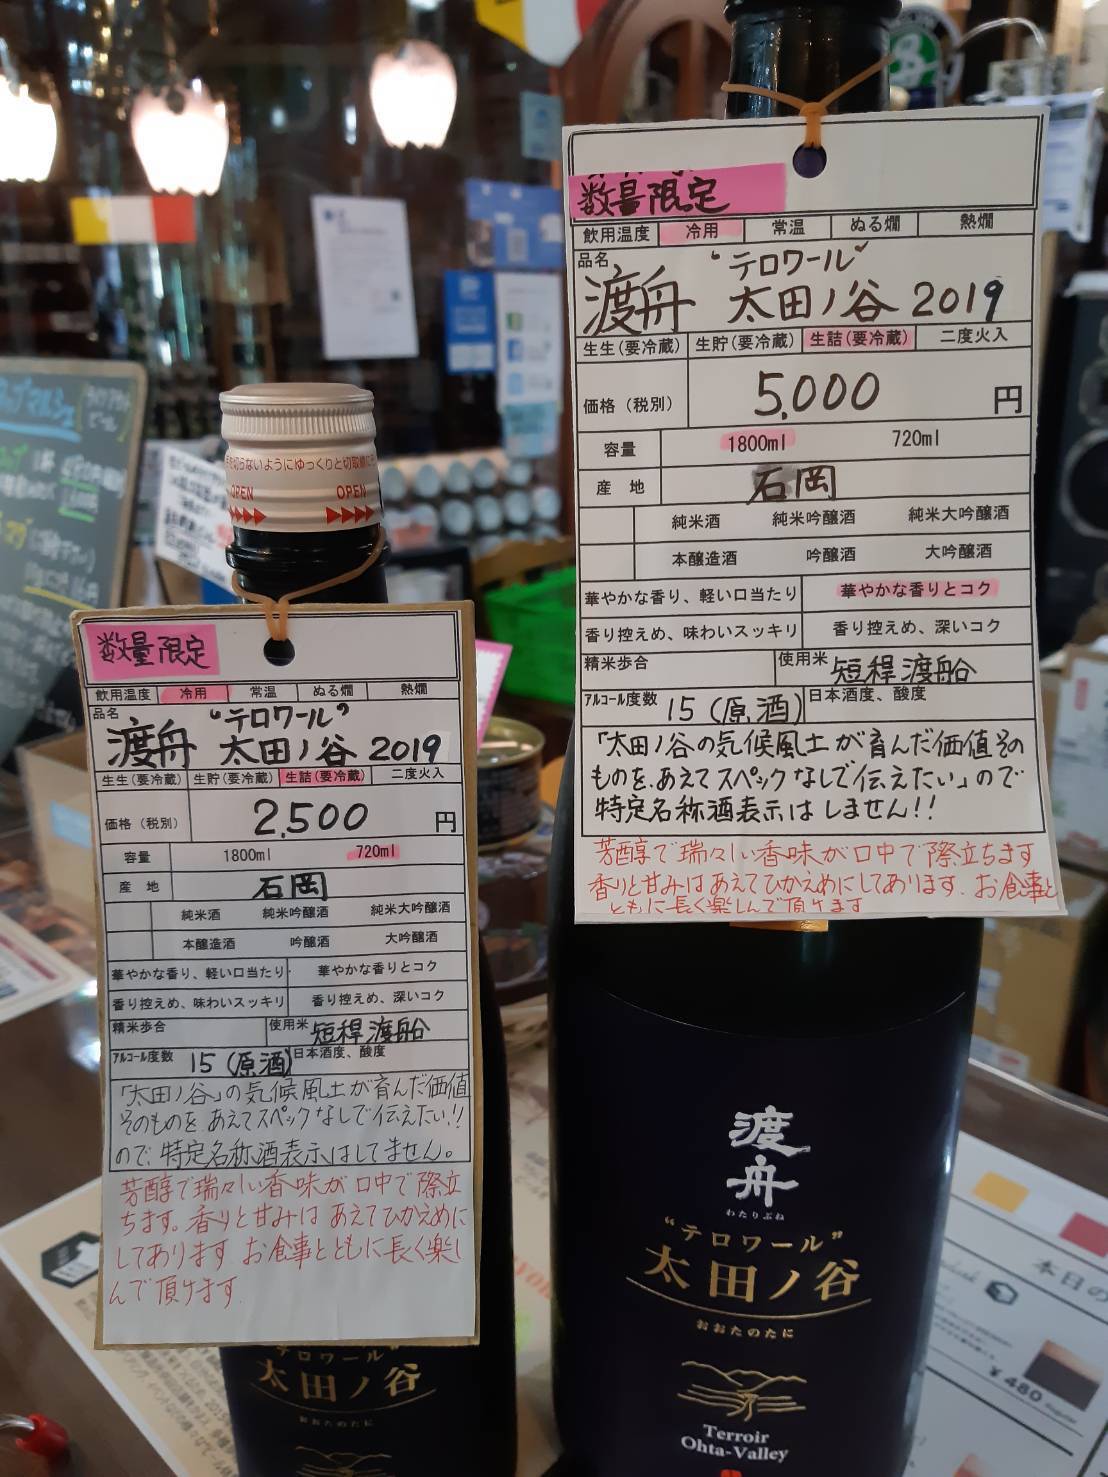 数量限定
飲用温度 冷用 常温 ぬる燗 熱燗
品名
"テロワール"
渡舟 太田ノ谷 2019
生生(要冷蔵) 生貯(要冷蔵) 生詰(要冷蔵) 二度火入
価格(税別) 5,000 円
容量 1800ml 720ml
産地 石岡
純米酒 純米吟醸酒 純米大吟醸酒
本醸造酒 吟醸酒 大吟醸酒
華やかな香り、軽い口当たり 華やかな香りとコク
香り控えめ、味わいスッキリ 香り控えめ、深いコク
精米歩合 使用米 短稈渡船
アルコール度数 15(原酒) 日本酒度、酸度
「太田ノ谷の気候風土が育んだ価値その
ものを、あえてスペックなしで伝えたい」ので
特定名称酒表示はしません!!
芳醇で瑞々しい香味が口中で際立ちます
香りと甘みはあえてひかえめにしてあります。お食事と
ともに長く楽しんで頂けます
を切らないようにゆっくりと切取線に
OPEN OPEN
数量限定
飲用温度 冷用 常温 ぬる燗 熱燗
品名
"テロワール"
渡舟 太田ノ谷 2019
生生(要冷蔵) 生貯(要冷蔵) 生詰(要冷蔵) 二度火入
価格(税別) 2,500 円
容量 1800ml 720ml
産地 石岡
純米酒 純米吟醸酒 純米大吟醸酒
本醸造酒 吟醸酒 大吟醸酒
華やかな香り、軽い口当たり 華やかな香りとコク
香り控えめ、味わいスッキリ 香り控えめ、深いコク
精米歩合 使用米 短稈渡船
アルコール度数 15(原酒) 日本酒度、酸度
「太田ノ谷」の気候風土が育んだ価値
そのものを、あえてスペックなしで伝えたい!!
ので、特定名称酒表示はしてません。
芳醇で瑞々しい香味が口中で際立
ちます。香りと甘みはあえてひかえめに
してあります お食事とともに長く楽し
んで頂けます
渡舟
わたりぶね
"テロワール"
太田ノ谷
おおたのたに
Terroir
Ohta-Valley
テロワール"
太田ノ谷
おおたのたに
本日の
¥480